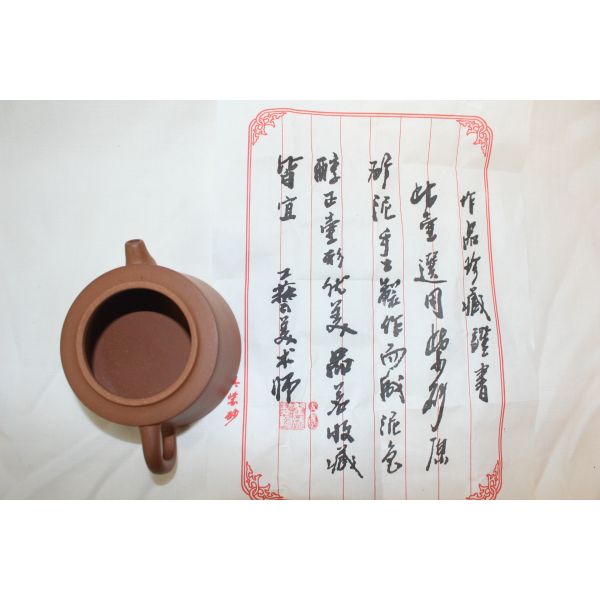 作品珍藏證書
此壷選用紫砂原
砂泥手工製作而成泥色
醇正壷形优美品茗收藏
皆宜
工藝美术師
紫砂